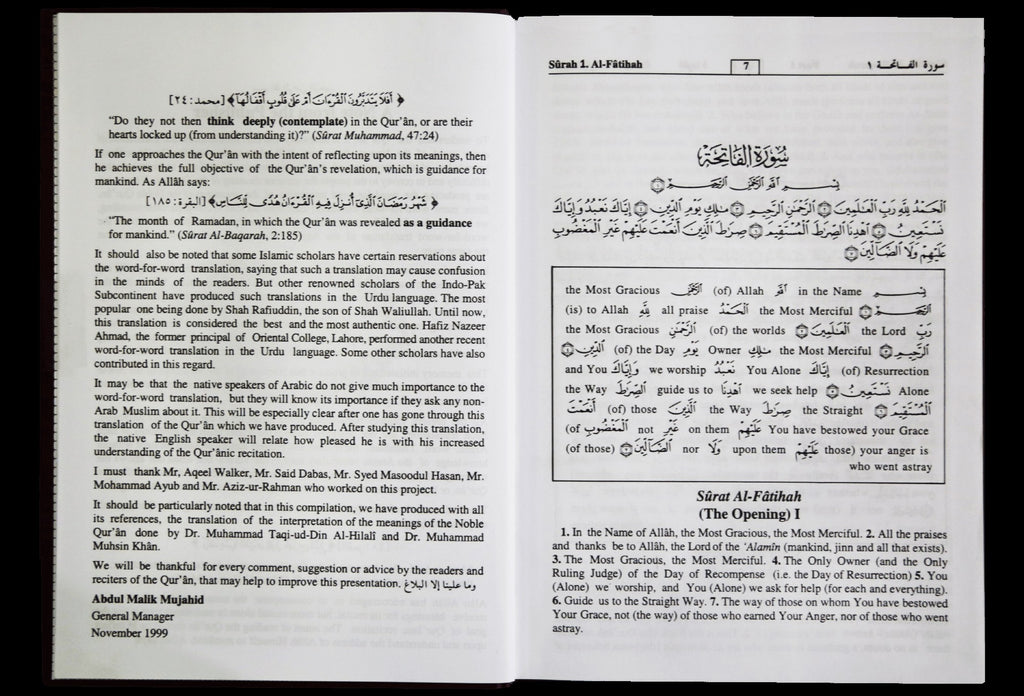 ﴿ أَفَلَا يَتَدَبَّرُونَ الْقُرْءَانَ أَمْ عَلَى قُلُوبٍ أَقْفَالُهَا﴾ [محمد: ٢٤]
“Do they not then think deeply (contemplate) in the Qur’ân, or are their
hearts locked up (from understanding it)?” (Sûrat Muhammad, 47:24)
If one approaches the Qur’ân with the intent of reflecting upon its meanings, then
he achieves the full objective of the Qur’ân’s revelation, which is guidance for
mankind. As Allâh says:
﴿ شَهْرُ رَمَضَانَ الَّذِي أُنزِلَ فِيهِ الْقُرْءَانُ هُدًى لِّلنَّاسِ﴾ [البقرة: ١٨٥]
“The month of Ramadan, in which the Qur’ân was revealed as a guidance
for mankind.” (Sûrat Al-Baqarah, 2:185)
It should also be noted that some Islamic scholars have certain reservations about
the word-for-word translation, saying that such a translation may cause confusion
in the minds of the readers. But other renowned scholars of the Indo-Pak
Subcontinent have produced such translations in the Urdu language. The most
popular one being done by Shah Rafiuddin, the son of Shah Waliullah. Until now,
this translation is considered the best and the most authentic one. Hafiz Nazeer
Ahmad, the former principal of Oriental College, Lahore, performed another recent
word-for-word translation in the Urdu language. Some other scholars have also
contributed in this regard.
It may be that the native speakers of Arabic do not give much importance to the
word-for-word translation, but they will know its importance if they ask any non-
Arab Muslim about it. This will be especially clear after one has gone through this
translation of the Qur’ân which we have produced. After studying this translation,
the native English speaker will relate how pleased he is with his increased
understanding of the Qur’ânic recitation.
I must thank Mr, Aqeel Walker, Mr. Said Dabas, Mr. Syed Masoodul Hasan, Mr.
Mohammad Ayub and Mr. Aziz-ur-Rahman who worked on this project.
It should be particularly noted that in this compilation, we have produced with all
its references, the translation of the interpretation of the meanings of the Noble
Qur’ân done by Dr. Muhammad Taqi-ud-Din Al-Hilalî and Dr. Muhammad
Muhsin Khân.
We will be thankful for every comment, suggestion or advice by the readers and
reciters of the Qur’ân, that may help to improve this presentation. وما علينا إلا البلاغ.
Abdul Malik Mujahid
General Manager
November 1999
Sûrah 1. Al-Fâtihah 7 سورة الفـاتحـة ١
سُورَةُ الفَاتِحَةِ
بِسْمِ اللَّهِ الرَّحْمَٰنِ الرَّحِيمِ ١
الْحَمْدُ لِلَّهِ رَبِّ الْعَالَمِينَ ٢ الرَّحْمَٰنِ الرَّحِيمِ ٣ مَالِكِ يَوْمِ الدِّينِ ٤ إِيَّاكَ نَعْبُدُ وَإِيَّاكَ
نَسْتَعِينُ ٥ اهْدِنَا الصِّرَاطَ الْمُسْتَقِيمَ ٦ صِرَاطَ الَّذِينَ أَنْعَمْتَ عَلَيْهِمْ غَيْرِ الْمَغْضُوبِ
عَلَيْهِمْ وَلَا الضَّالِّينَ ٧
بِسْمِ in the Name اللَّهِ (of) Allah الرَّحْمَٰنِ the Most Gracious
الرَّحِيمِ ١ the Most Merciful الْحَمْدُ all praise لِلَّهِ (is) to Allah
رَبِّ the Lord الْعَالَمِينَ ٢ (of) the worlds الرَّحْمَٰنِ the Most Gracious
الرَّحِيمِ ٣ the Most Merciful مَالِكِ Owner يَوْمِ (of) the Day الدِّينِ ٤
(of) Resurrection إِيَّاكَ You Alone نَعْبُدُ we worship وَإِيَّاكَ and You
Alone نَسْتَعِينُ ٥ we seek help اهْدِنَا guide us to الصِّرَاطَ the Way
الْمُسْتَقِيمَ ٦ the Straight صِرَاطَ the Way الَّذِينَ (of) those أَنْعَمْتَ
You have bestowed your Grace عَلَيْهِمْ on them غَيْرِ not الْمَغْضُوبِ (of
those) your anger is عَلَيْهِمْ upon them وَلَا nor الضَّالِّينَ ٧ (of those)
who went astray
Sûrat Al-Fâtihah
(The Opening) I
1. In the Name of Allâh, the Most Gracious, the Most Merciful. 2. All the praises
and thanks be to Allâh, the Lord of the ‘Alamîn (mankind, jinn and all that exists).
3. The Most Gracious, the Most Merciful. 4. The Only Owner (and the Only
Ruling Judge) of the Day of Recompense (i.e. the Day of Resurrection) 5. You
(Alone) we worship, and You (Alone) we ask for help (for each and everything).
6. Guide us to the Straight Way. 7. The way of those on whom You have bestowed
Your Grace, not (the way) of those who earned Your Anger, nor of those who went
astray.